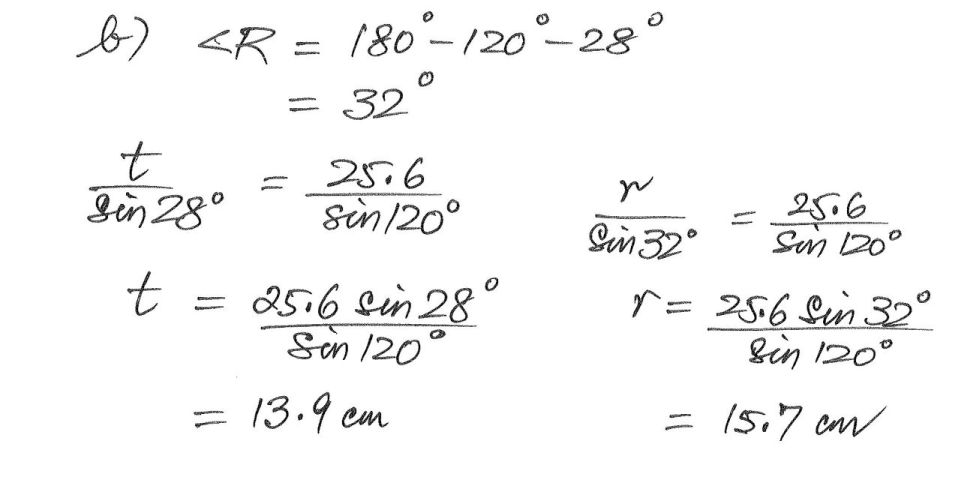 b) <R = 180° - 120° - 28°
= 32°
t / sin 28° = 25.6 / sin 120°
t = 25.6 sin 28° / sin 120°
= 13.9 cm
r / sin 32° = 25.6 / sin 120°
r = 25.6 sin 32° / sin 120°
= 15.7 cm